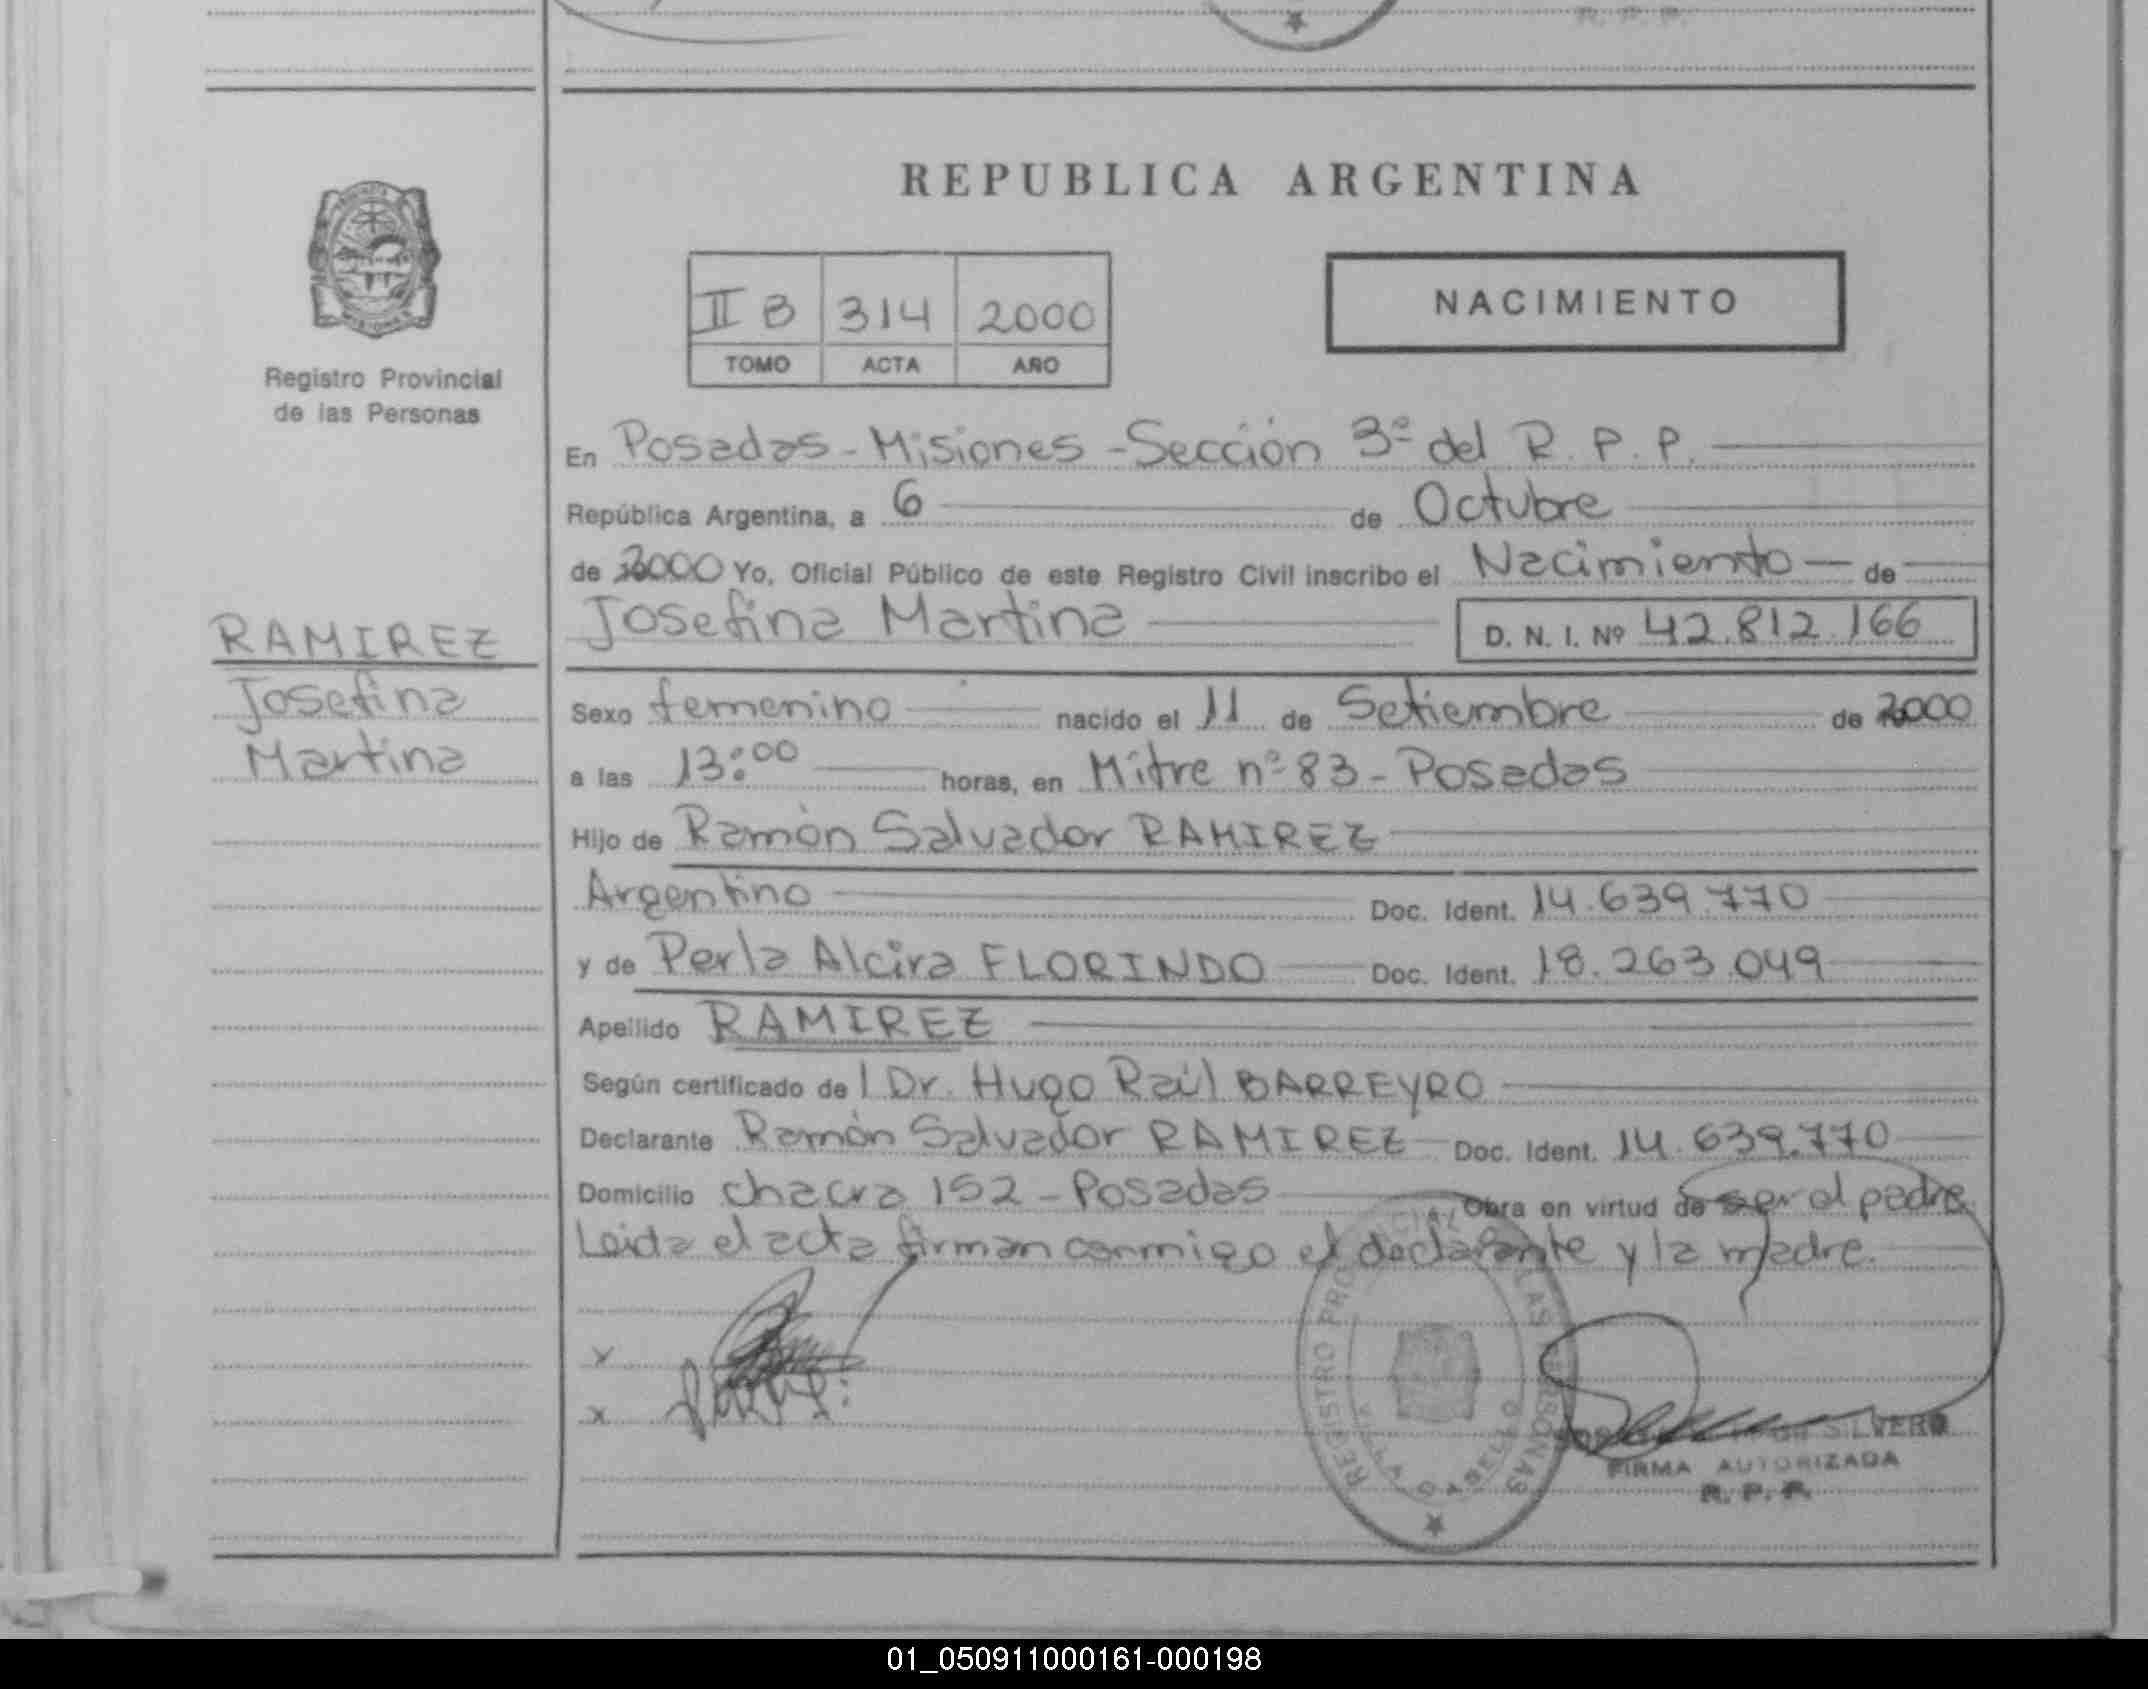 R. P. P.
REPUBLICA ARGENTINA
II B 314 2000
TOMO ACTA AÑO
NACIMIENTO
Registro Provincial
de las Personas
En Posadas - Misiones - Sección 3ª del R. P. P.
República Argentina, a 6 de Octubre
de 2000 Yo, Oficial Público de este Registro Civil inscribo el Nacimiento de
Josefina Martina D. N. I. Nº 42.812.166
RAMIREZ
Josefina
Martina
Sexo femenino nacido el 11 de Setiembre de 2000
a las 13:00 horas, en Mitre nº 83 - Posadas
Hijo de Ramón Salvador RAMIREZ
Argentino Doc. Ident. 14.639.770
y de Perla Alcira FLORINDO Doc. Ident. 18.263.049
Apellido RAMIREZ
Según certificado de l Dr. Hugo Raúl BARREYRO
Declarante Ramón Salvador RAMIREZ Doc. Ident. 14.639.770
Domicilio chacra 152 - Posadas Obra en virtud de ser el padre
Leida el acta firman conmigo el declarante y la madre.
x
x
REGISTRO PROVINCIAL LAS PERSONAS
VILLA CABELLO
SILVERO
FIRMA AUTORIZADA
R. P. P.
01_050911000161-000198